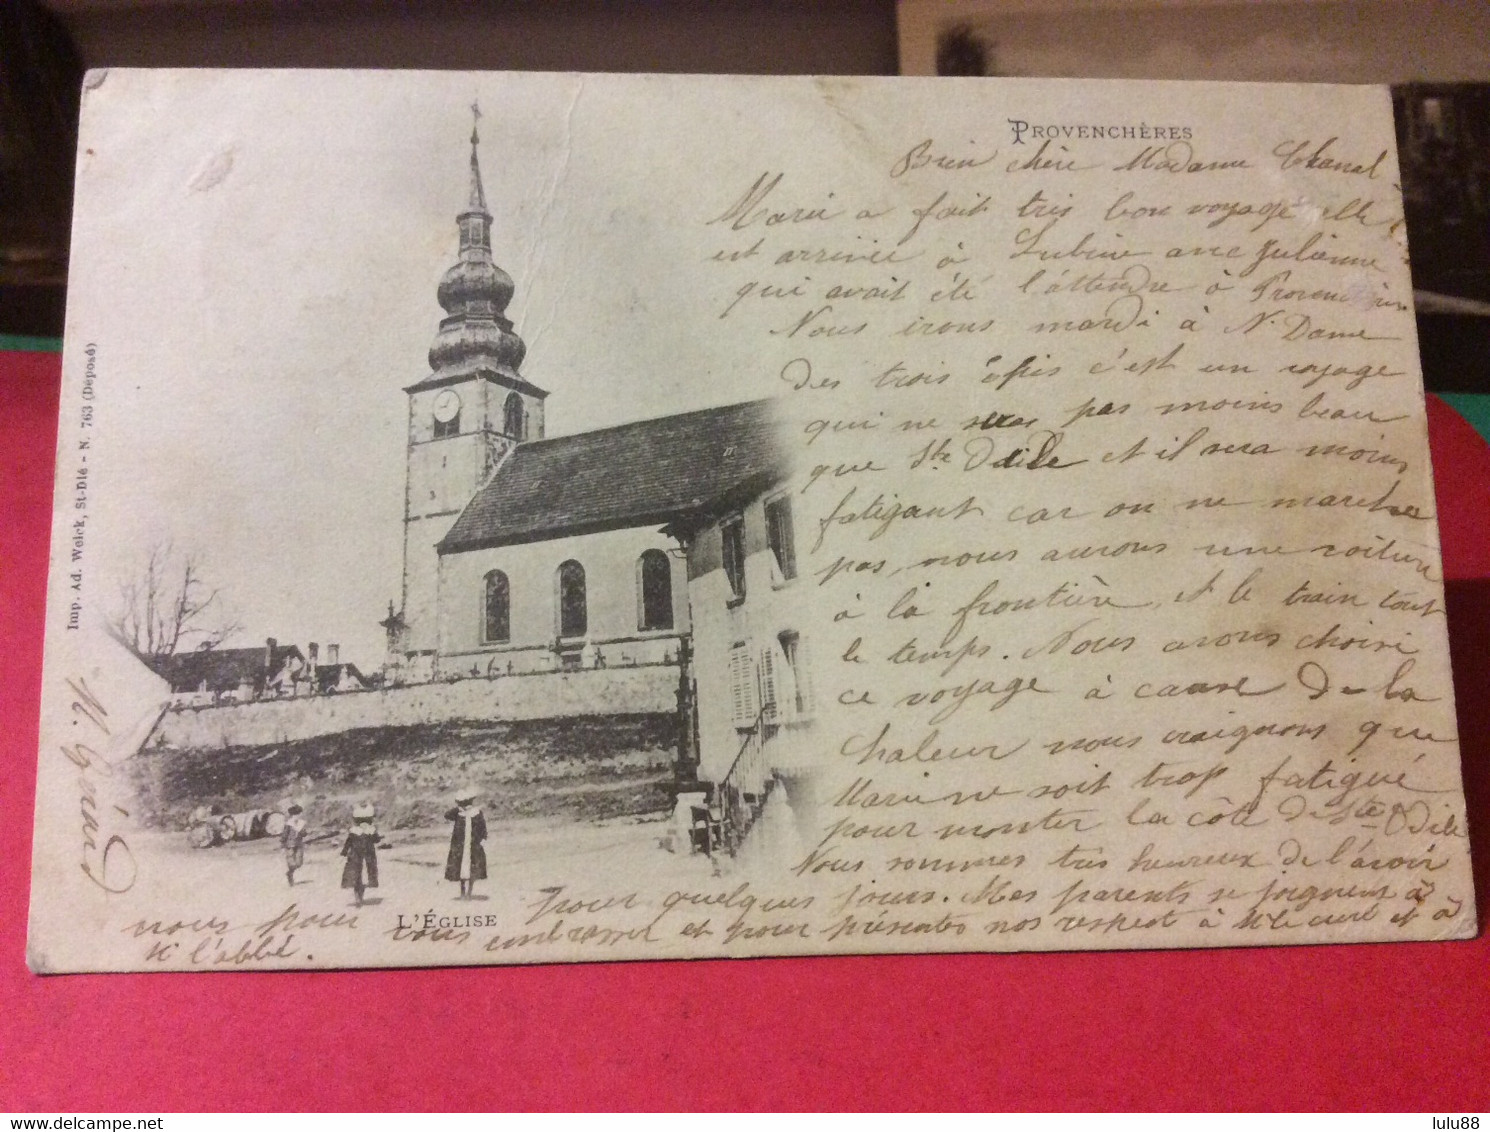 PROVENCHÈRES
Bien chère Madame Chanal
Marie a fait très bon voyage elle
est arrivée à Lubine avec Julienne
qui avait été l'attendre à Provenchères
Nous irons mardi à N. Dame
des trois épis c'est un voyage
qui ne sera pas moins beau
que Ste Odile et il sera moins
fatigant car on ne marchera
pas, nous aurons une voiture
à la frontière, et le train tout
le temps. Nous avons choisi
ce voyage à cause de la
chaleur nous craignons que
Marie ne soit trop fatigué
pour monter la côte de Ste Odile
Nous sommes très heureux de l'avoir
pour quelques jours. Mes parents se joignent à
nous pour vous embrasser et pour présenter nos respect à M. le curé et à
M l'abbé.
L'ÉGLISE
Imp. Ad. Weick, St-Dié - N. 763 (Déposé)
delcampe.net
lulu88